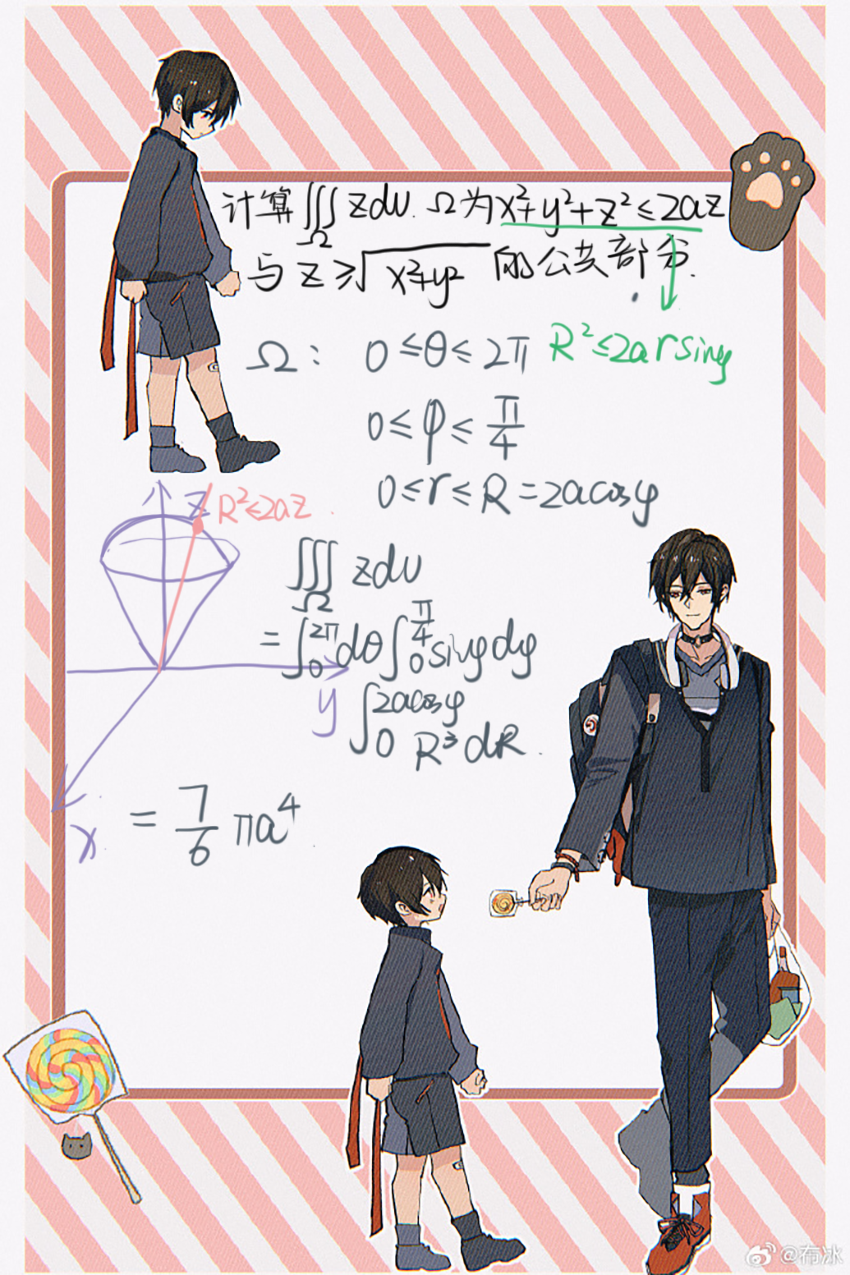 计算 ∭Ω zdv. Ω为x²+y²+z²≤2az
与 z≥√x²+y² 的公共部分.
Ω: 0≤θ≤2π R²≤2arsinφ
0≤φ≤π/4
0≤r≤R=2acosφ
z R²≤2az.
∭Ω zdv
=∫₀^2π dθ∫₀^π/4 sinφdφ
y ∫₀^2acosφ R³dR.
x = 7/6 πa⁴
@布冰